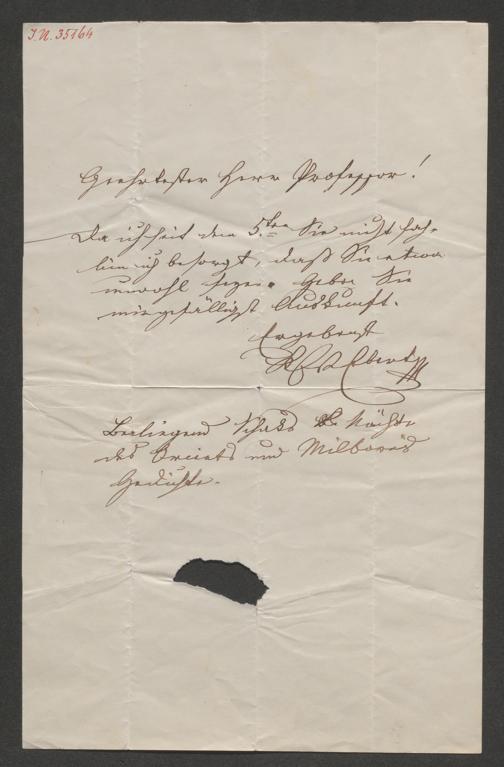 I.N. 35164
Geehrtester Herr Professor!
Da ich seit dem 5.ten Sie nicht sah,
bin ich besorgt, daß Sie etwa
unwohl seyen. Geben Sie
mir gefälligst Auskunft.
Ergebenst
K E Ebert
Beiliegend Schaks Nächte
des Orients und Milbows
Gedichte.